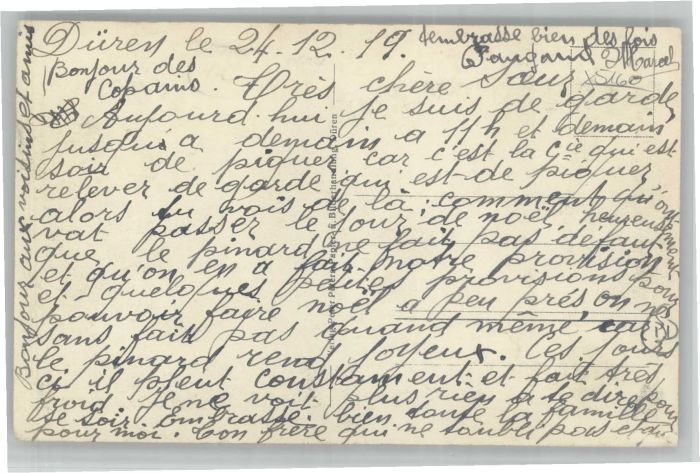 Düren le 24.12.19.
Très chère Sœur
Aujourd'hui je suis de garde
jusqu'à demain a 11h et demain
soir de piquet car c'est la Cie qui est
relever de garde qui est de piquet
alors tu vois de là comment qu'on
vat passer le jour de noël heureusement
que le pinard ne fait pas défaut
et qu'on en a fait notre provision
et quelques petites provisions pour
pouvoir faire noël a peu près on
sans fait pas quand même, car
le pinard rend joyeux. Ces jours
ci il pleut constament et fait très
froid je ne voit plus rien a te dire pour
ce soir Embrasse bien toute la famille
pour moi. Ton frère qui ne t'oubli pas et qui
t'embrasse bien des fois
Marcel
X5160
Bonjour des
Copains.
Bonjour aux voisins et amis